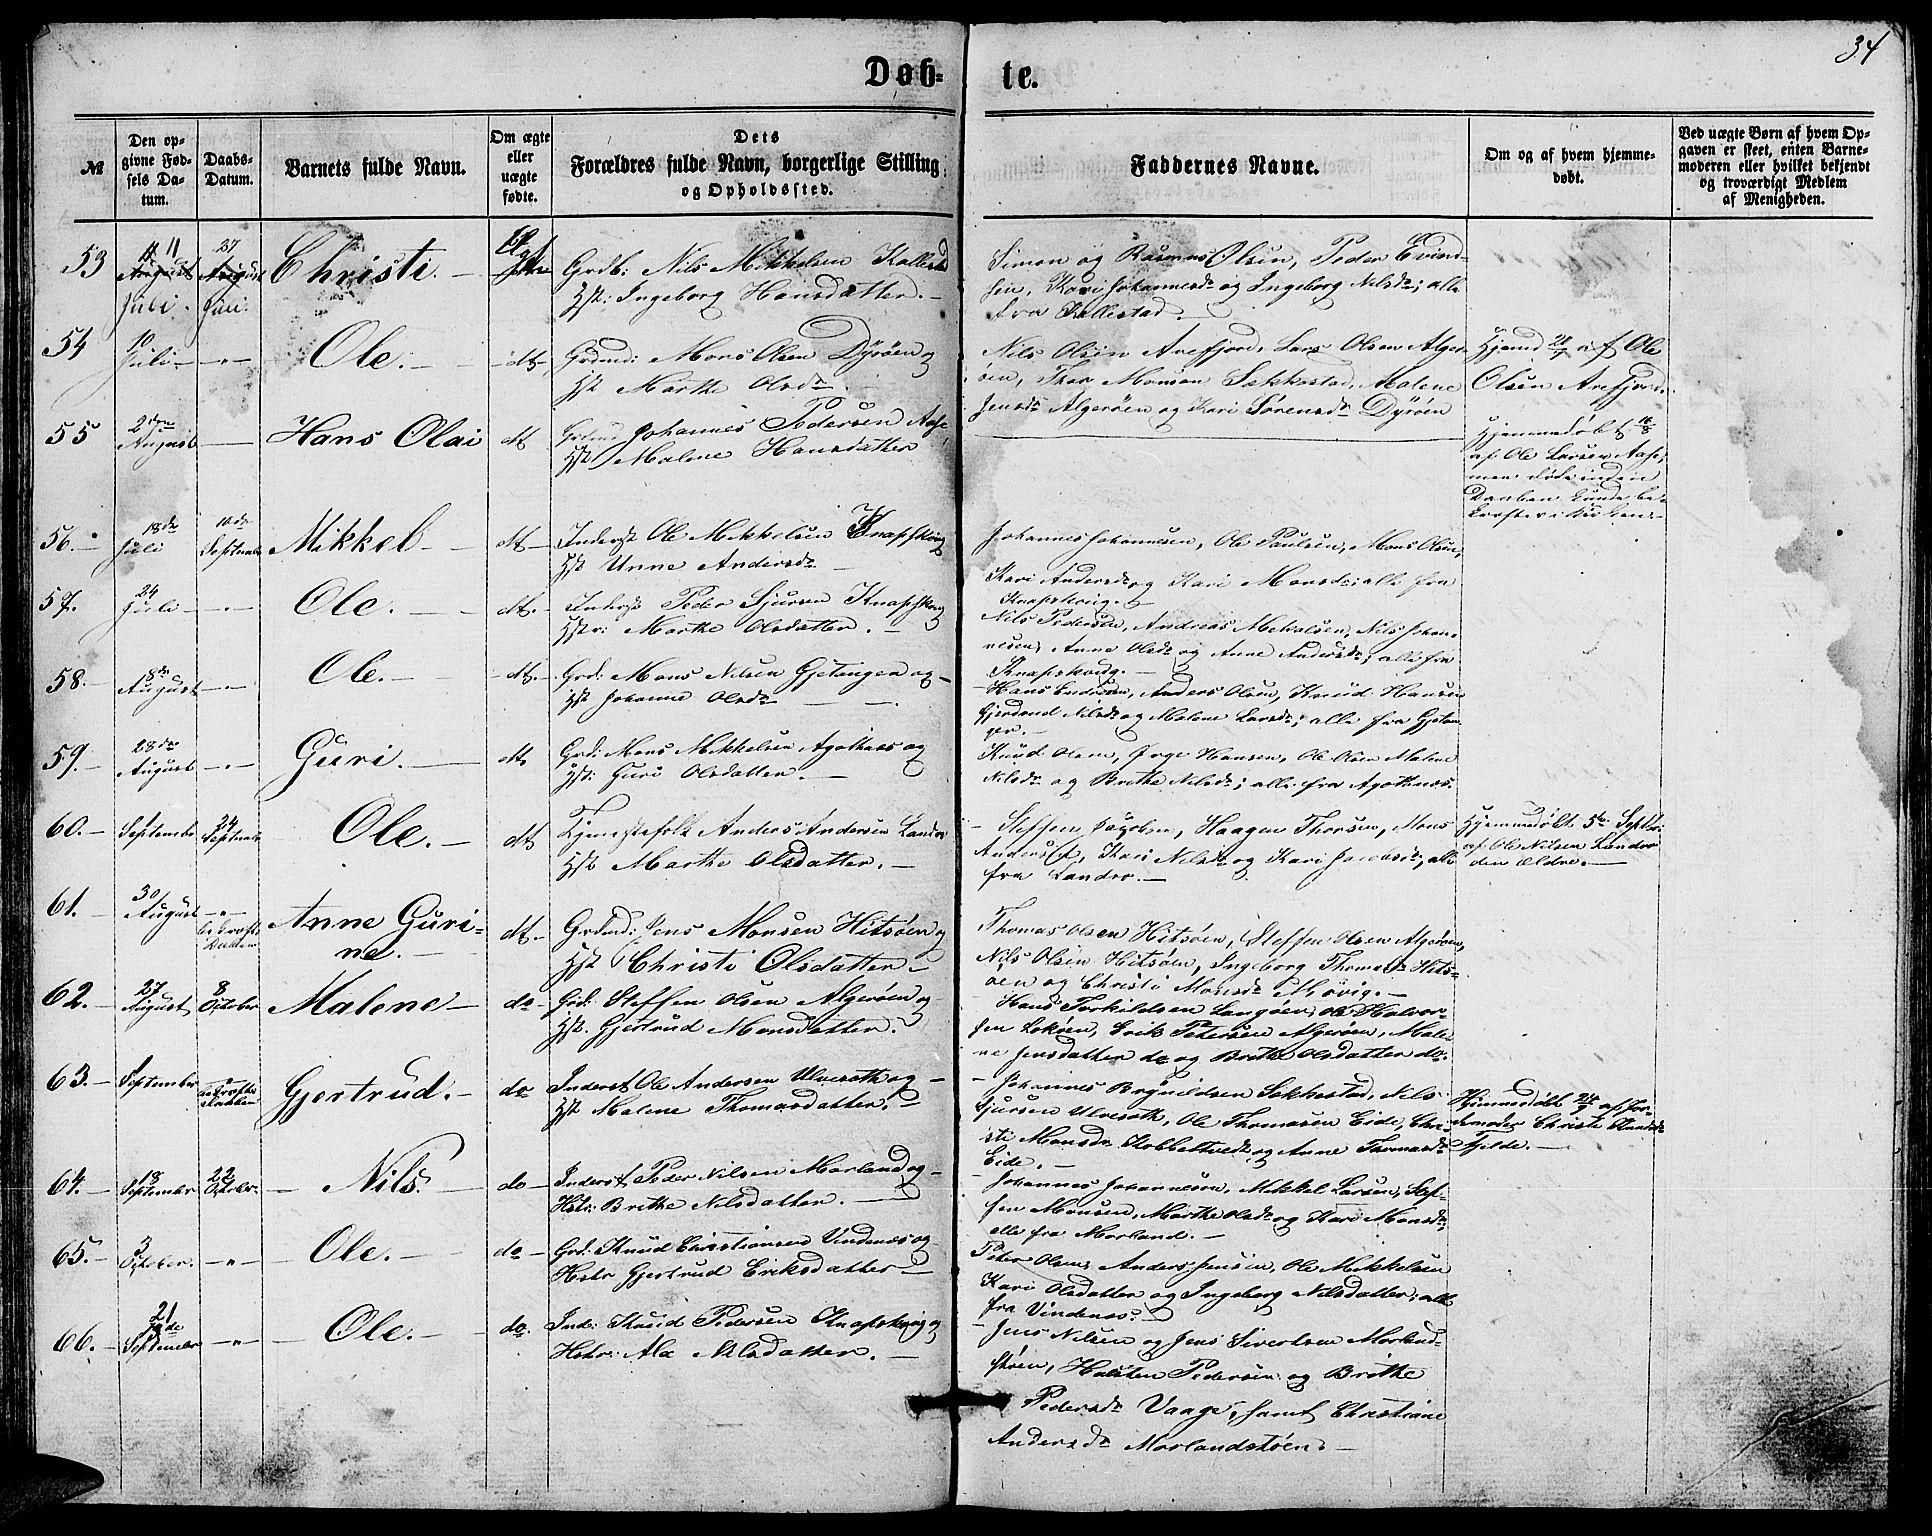 34
Døb=
te.
№
Den op-
givne Fød-
sels Da-
tum.
Daabs-
Datum.
Barnets fulde Navn.
Om ægte
eller
uægte
fødte.
Dets
Forældres fulde Navn, borgerlige Stilling
og Opholdssted.
Faddernes Navne.
Om og af hvem hjemme-
døbt.
Ved uægte Børn af hvem Op-
gaven er skeet, enten Barne-
moderen eller hvilket bekjendt
og troværdigt Medlem
af Menigheden.
53
11 11
August
Juli.
27
August
Juli.
Christi. —
Grdb: Nils Mikkelsen
Hst: Ingeborg Hansdatter. —
Simon og Rasmus Olsen, Peder Evind-
sen, Kari Johannesdr og Ingeborg Nilsdr; alle
fra Kallestad.
54
10
Juli —
— „ —
Ole. —
dt —
Grdmd: Mons Olsen Dyröen og
Hst Marthe Olsdr. —
Nils Olsen Arefjord, Lars Olsen Alger-
öen, Thor Monsen Sekkestad, Malene
Jensdr Algeröen og Kari Sörensdr Dyröen
Hjemd 28/7 af Ole
Olsen Arefjord.
55
2den
August
—
Hans Olai
dt
Johannes Pedersen
Hst Malene Hansdatter
Hjemmedöbt
af Ole Larsen
men döde inden
Daaben kunde be-
kræftes i Kirken —
56. —
18de
Juli
10de
Septenbr
Mikkel — —
dt —
Inderst Ole Mikkelsen Knapskoug
Hst Unne Andersdr —
Johannes Johannesen, Ole Paulsen, Mons Olsen,
Kari Andersdr og Kari Monsdr; alle fra
Knapskoug. —
57.
24
Juli —
— „ —
Ole. — —
dt. —
Inderst Peder Sjursen Knapskoug
Hstr: Marthe Olsdatter. —
Nils Pedersen, Andreas Mikalsen, Nils Johan-
nesen, Anne Olsdr og Anne Andersdr; alle fra
Knapskoug. —
58. —
8de
August
— „ —
Ole. —
— dt. —
Grd: Mons Nilsen Gjetanger og —
Hst Johanne Olsdr — —.
— Hans Endresen, Anders Olsen, Knud Hansen
Gjertrud Nilsdr og Malene Larsdr; alle fra Gjetan-
ger. —
59. —
28de
August
— „ —
Guri. —
dt.
Grd: Mons Mikkelsen Agothnes og
Hst: Guri Olsdatter. —
Knud Olsen, Hansen, Ole Olsen Malene
Nilsdr og Brithe Nilsdr; alle fra Agothnes.
60. —
1
Septembr
24
Septembr
Ole. —
dt
Tjenestefolk Anders Andersen Landro
Hst Marthe Olsdatter. —
— Steffen Jacobsen, Haagen Thorsen, Mons
Anders Kari Nilsdr og Kari Jacobsdr; alle
fra Landro. —
Hjemmedöbt 5te Septbr:
af Ole Nilsen Landro
den ældre. —
61. —
30
August
— „ —
Anne Guri-
ne. —
dt —
Grdmd: Jens Monsen Hitsöen og
Hst Christi Olsdatter —
Thomas Olsen Hitsöen, Steffen Olsen Algeröen,
Nils Olsen Hitsöen, Ingeborg Thomasdr Hits-
öen og Christi Monsdr Mövig. —
62. —
27
August
8
October
Malene —
do —
Grd: Steffen Olsen Algeröen og
Hst. Gjertrud Monsdatter.
— Hans Torkildsen Langöen, Ole Halvor-
sen Loköen, Erik Petersen Algeröen, Male-
ne Jensdatter do og Brithe Olsdatter do.
63. —
September
Gjertrud. —
do —
Inderst Ole Andersen Ulveseth og —
Hst Malene Thomasdatter. —
— Johannes Brynildsen Sekkestad, Nils
Sjursen Ulveseth, Ole Thomasen Eide, Chri-
sti Monsdr Kobbeltvedt og Anne Thomasdr
Eide. —
Hjemmedöbt 24/9 af Jor-
demoder Christi Knudsdr
Tjelde. —
64. —
18
September
22
October —
— Nils.
do —
Inderst Peder Nilsen Morland og —
Hstr: Brithe Nilsdatter. —
— Johannes Johannesen, Mikkel Larsen, Stef-
fen Monsen, Marthe Olsdr og Kari Monsdr;
alle fra Morland. —
65. —
3
October.
— „ —
Ole. —
do —
Grd: Knud Christiansen Vindenæs og
Hstr Gjertrud Eriksdatter —
Peter Olsen, Anders Jensen, Ole Mikkelsen
Kari Olsdatter og Ingeborg Nilsdatter; alle
fra Vindenæs.
66. —
21
September
— „ —
— Ole. —
do.
Inds: Knud Pedersen Knapskoug og
Hstr: Ale Nilsdatter. —
— Jens Nilsen og Jens Sivertsen Morland-
stöen, Halsten Pedersen og Brithe
Pedersdr Vaage, samt Christiane
Andersdr Morlandstöen. —